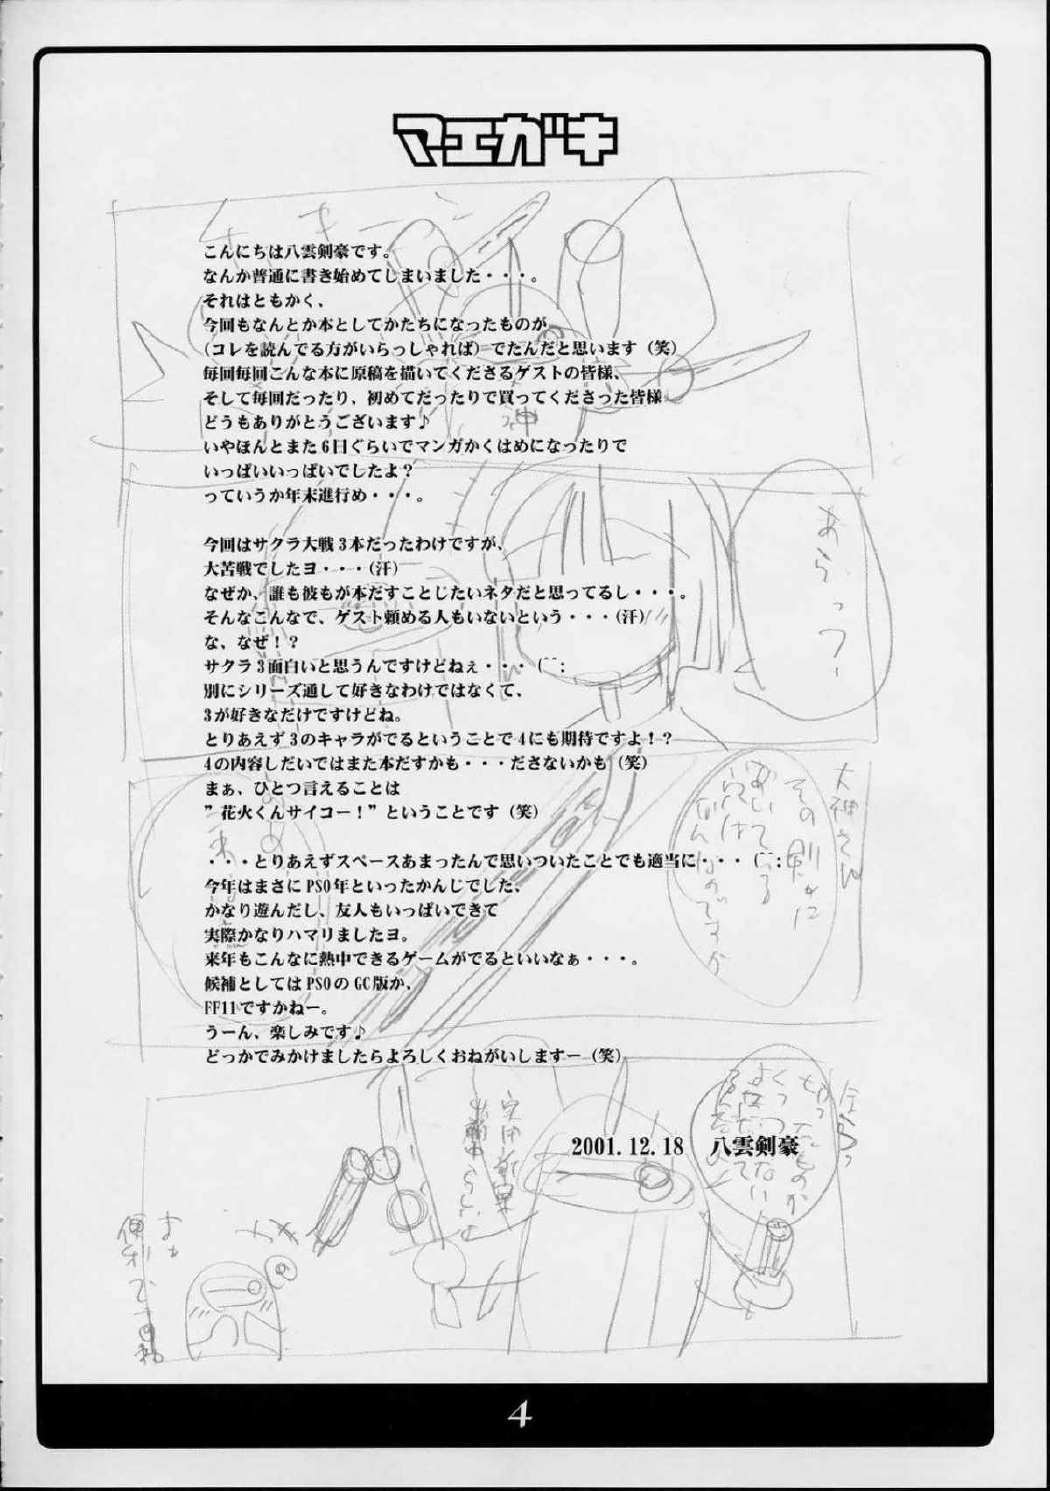 マエガキ
こんにちは八雲剣豪です。
なんか普通に書き始めてしまいました・・・。
それはともかく、
今回もなんとか本としてかたちになったものが
(コレを読んでる方がいらっしゃれば) でたんだと思います (笑)
毎回毎回こんな本に原稿を描いてくださるゲストの皆様、
そして毎回だったり、初めてだったりで買ってくださった皆様
どうもありがとうございます♪
いやほんとまた6日ぐらいでマンガかくはめになったりで
いっぱいいっぱいでしたよ?
っていうか年末進行め・・・。
今回はサクラ大戦3本だったわけですが、
大苦戦でしたヨ・・・(汗)
なぜか、誰も彼もが本だすことじたいネタだと思ってるし・・・。
そんなこんなで、ゲスト頼める人もいないという・・・(汗)
な、なぜ!?
サクラ3面白いと思うんですけどねぇ・・・ (¯¯;
別にシリーズ通して好きなわけではなくて、
3が好きなだけですけどね。
とりあえず3のキャラがでるということで4にも期待ですよ!?
4の内容しだいではまた本だすかも・・・ださないかも (笑)
まぁ、ひとつ言えることは
"花火くんサイコー!" ということです (笑)
・・・とりあえずスペースあまったんで思いついたことでも適当に・・・ (¯¯;
今年はまさにPSO年といったかんじでした、
かなり遊んだし、友人もいっぱいできて
実際かなりハマリましたヨ。
来年もこんなに熱中できるゲームがでるといいなぁ・・・。
候補としてはPSOのGC版か、
FF11ですかねー。
うーん、楽しみです♪
どっかでみかけましたらよろしくおねがいしますー (笑)
あらっ
大神さん
その剣に
2001.12.18 八雲剣豪
4